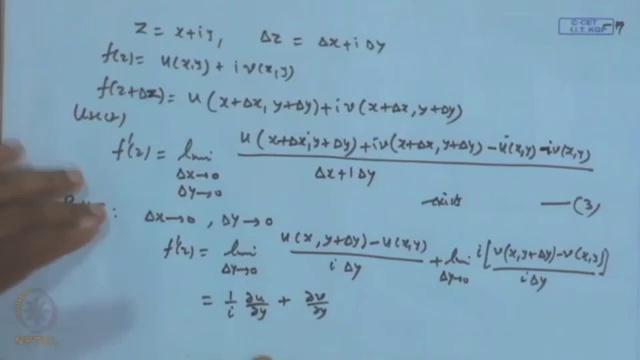 C-CET
I.I.T. KGP
Z = x+iy, Δz = Δx+iΔy
f(z) = u(x,y) + i v(x,y)
f(z+Δz) = u(x+Δx, y+Δy) + i v(x+Δx, y+Δy)
f'(z) = lim Δx→0 Δy→0 u(x+Δx, y+Δy) + i v(x+Δx, y+Δy) - u(x,y) - i v(x,y) / Δx+iΔy
—(3)
: Δx→0, Δy→0
f'(z) = lim Δy→0 u(x, y+Δy) - u(x,y) / iΔy + lim Δy→0 i[v(x, y+Δy) - v(x,y)] / iΔy
= 1/i ∂u/∂y + ∂v/∂y
NPTEL